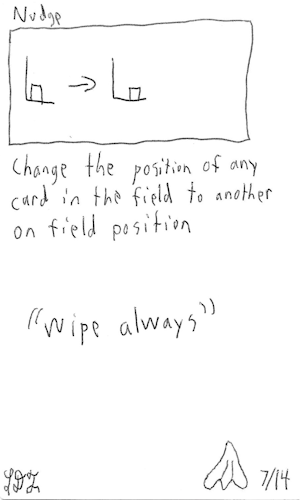 Nudge
Change the position of any
card in the field to another
on field position
"Wipe always"
7/14